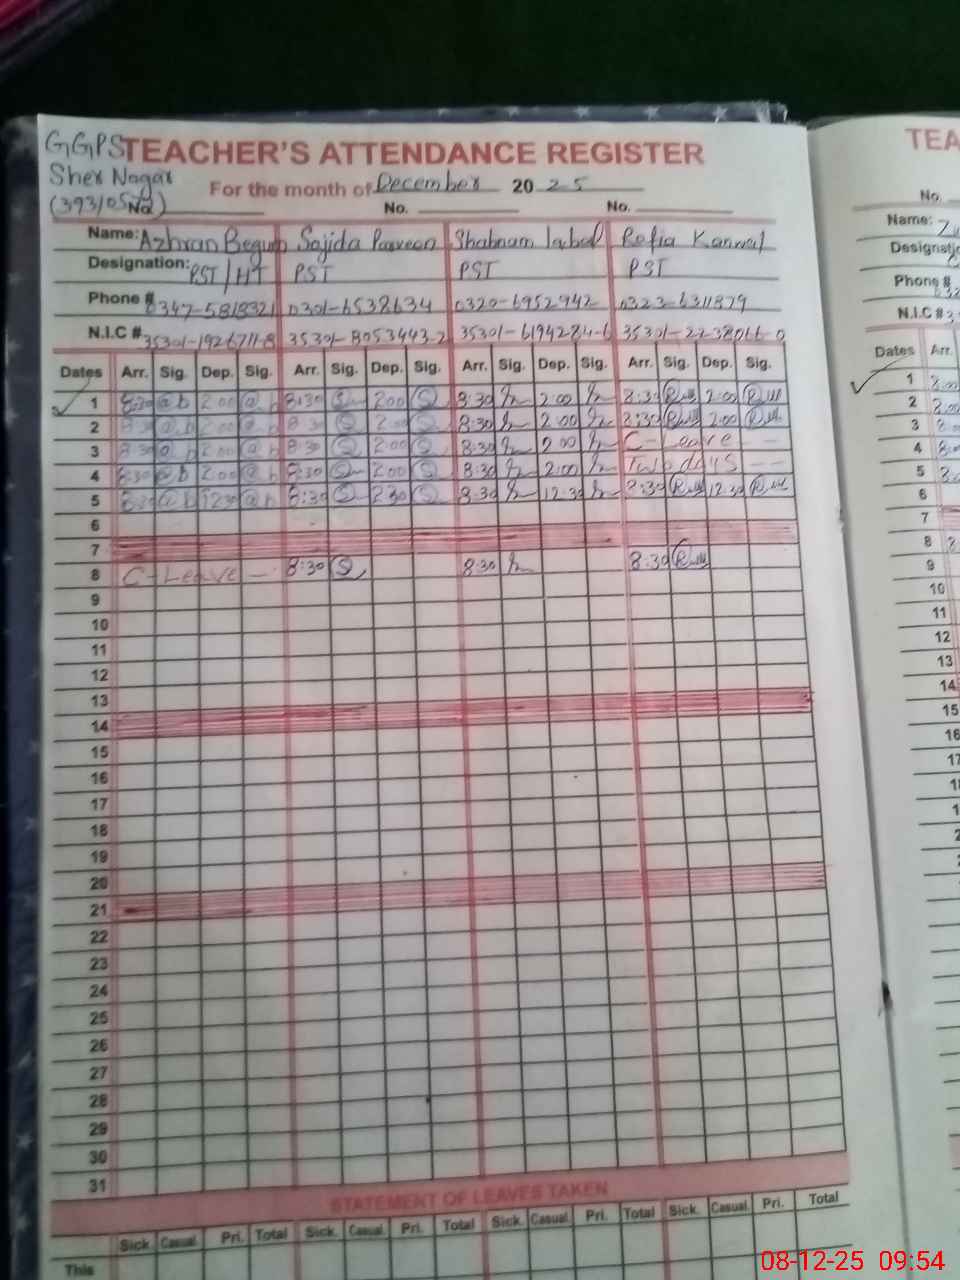 GGPS TEACHER'S ATTENDANCE REGISTER
Sher Nagar For the month of December 2025
No. No. No.
Name: Begum Sajida Parveen Shabnam Iqbal Rafia Kanwal
Designation: PST/HT PST PST PST
Phone # 0347-5818321 0301-6538634 0320-6952942 0323-6311879
N.I.C # 35301-1926711-8 35301-8053443-2 35301-6194284-6 35301-2238066-0
Dates Arr. Sig. Dep. Sig. Arr. Sig. Dep. Sig. Arr. Sig. Dep. Sig. Arr. Sig. Dep. Sig.
1 8:30 2:00 8:30 2:00 8:30 2:00 8:30 2:00
2 8:30 2:00 8:30 2:00 8:30 2:00 8:30 2:00
3 8:30 2:00 8:30 2:00 8:30 2:00 C-Leave
4 8:30 2:00 8:30 2:00 8:30 2:00 Two days
5 8:30 12:30 8:30 8:30 12:30 8:30 12:30
6
7
8 C-Leave 8:30 8:30 8:30
9
10
11
12
13
14
15
16
17
18
19
20
21
22
23
24
25
26
27
28
29
30
31
STATEMENT OF LEAVES TAKEN
Sick. Casual. Pri. Total Sick. Casual. Pri. Total Sick. Casual. Pri. Total Sick. Casual. Pri. Total
This
TEA
No.
Name:
Designatio
Phone #
N.I.C #
Dates Arr.
1
2
3
4
5
6
7
8
9
10
11
12
13
14
15
16
08-12-25 09:54